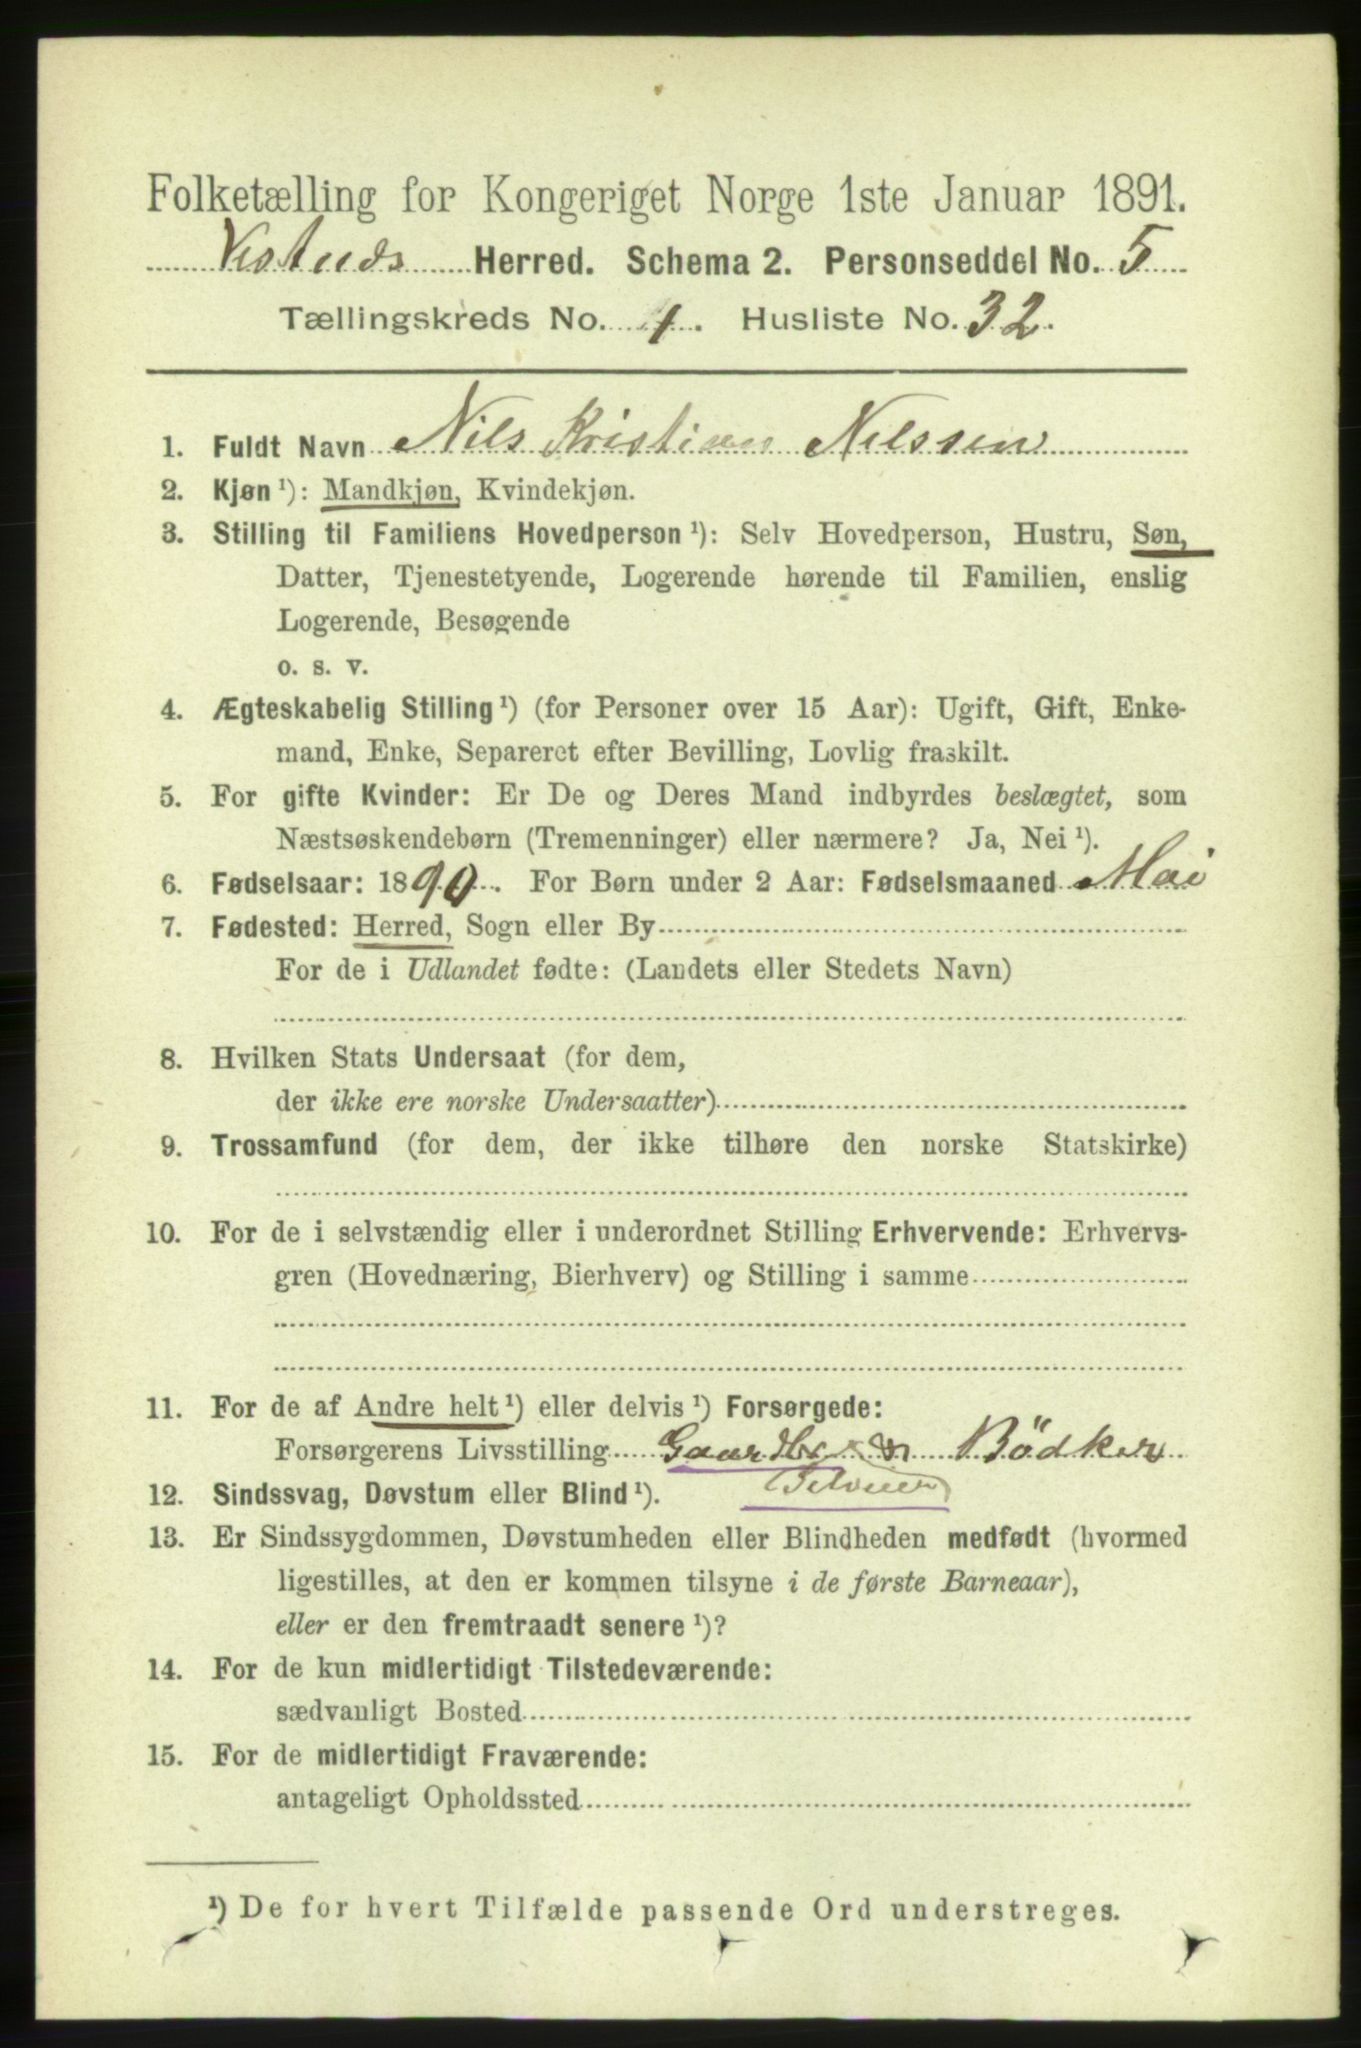 Folketælling for Kongeriget Norge 1ste Januar 1891.
Vestnes Herred. Schema 2. Personseddel No. 5
Tællingskreds No. 1. Husliste No. 32.
1. Fuldt Navn Nils Kristian Nilssen
2. Kjøn ¹): Mandkjøn, Kvindekjøn.
3. Stilling til Familiens Hovedperson ¹): Selv Hovedperson, Hustru, Søn,
Datter, Tjenestetyende, Logerende hørende til Familien, enslig
Logerende, Besøgende
o. s. v.
4. Ægteskabelig Stilling ¹) (for Personer over 15 Aar): Ugift, Gift, Enke-
mand, Enke, Separeret efter Bevilling, Lovlig fraskilt.
5. For gifte Kvinder: Er De og Deres Mand indbyrdes beslægtet, som
Næstsøskendebørn (Tremenninger) eller nærmere? Ja, Nei ¹).
6. Fødselsaar: 1890. For Børn under 2 Aar: Fødselsmaaned Mai
7. Fødested: Herred, Sogn eller By
For de i Udlandet fødte: (Landets eller Stedets Navn)
8. Hvilken Stats Undersaat (for dem,
der ikke ere norske Undersaatter)
9. Trossamfund (for dem, der ikke tilhøre den norske Statskirke)
10. For de i selvstændig eller i underordnet Stilling Erhvervende: Erhvervs-
gren (Hovednæring, Bierhverv) og Stilling i samme
11. For de af Andre helt ¹) eller delvis ¹) Forsørgede:
Forsørgerens Livsstilling Gaardbr Bödker
12. Sindssvag, Døvstum eller Blind ¹).
13. Er Sindssygdommen, Døvstumheden eller Blindheden medfødt (hvormed
ligestilles, at den er kommen tilsyne i de første Barneaar),
eller er den fremtraadt senere ¹)?
14. For de kun midlertidigt Tilstedeværende:
sædvanligt Bosted
15. For de midlertidigt Fraværende:
antageligt Opholdssted
¹) De for hvert Tilfælde passende Ord understreges.